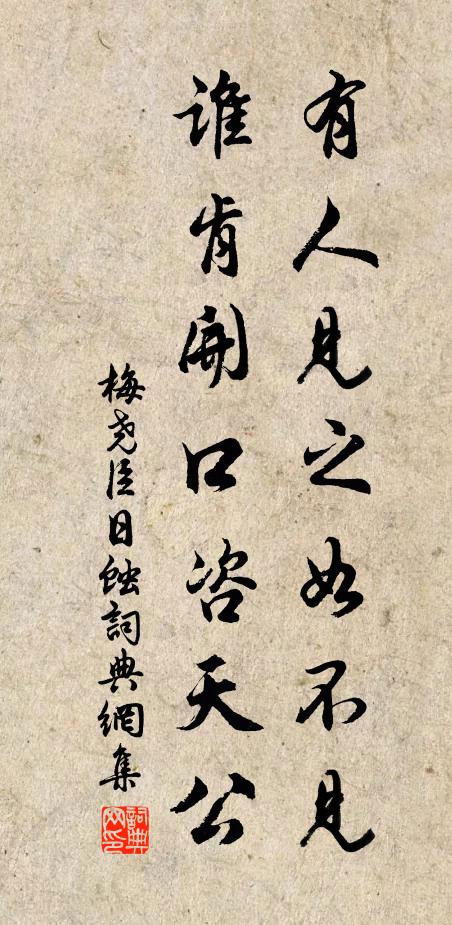 有人見之如不見
誰肯開口咨天公
梅堯臣日蝕詞典網集
詞典網印